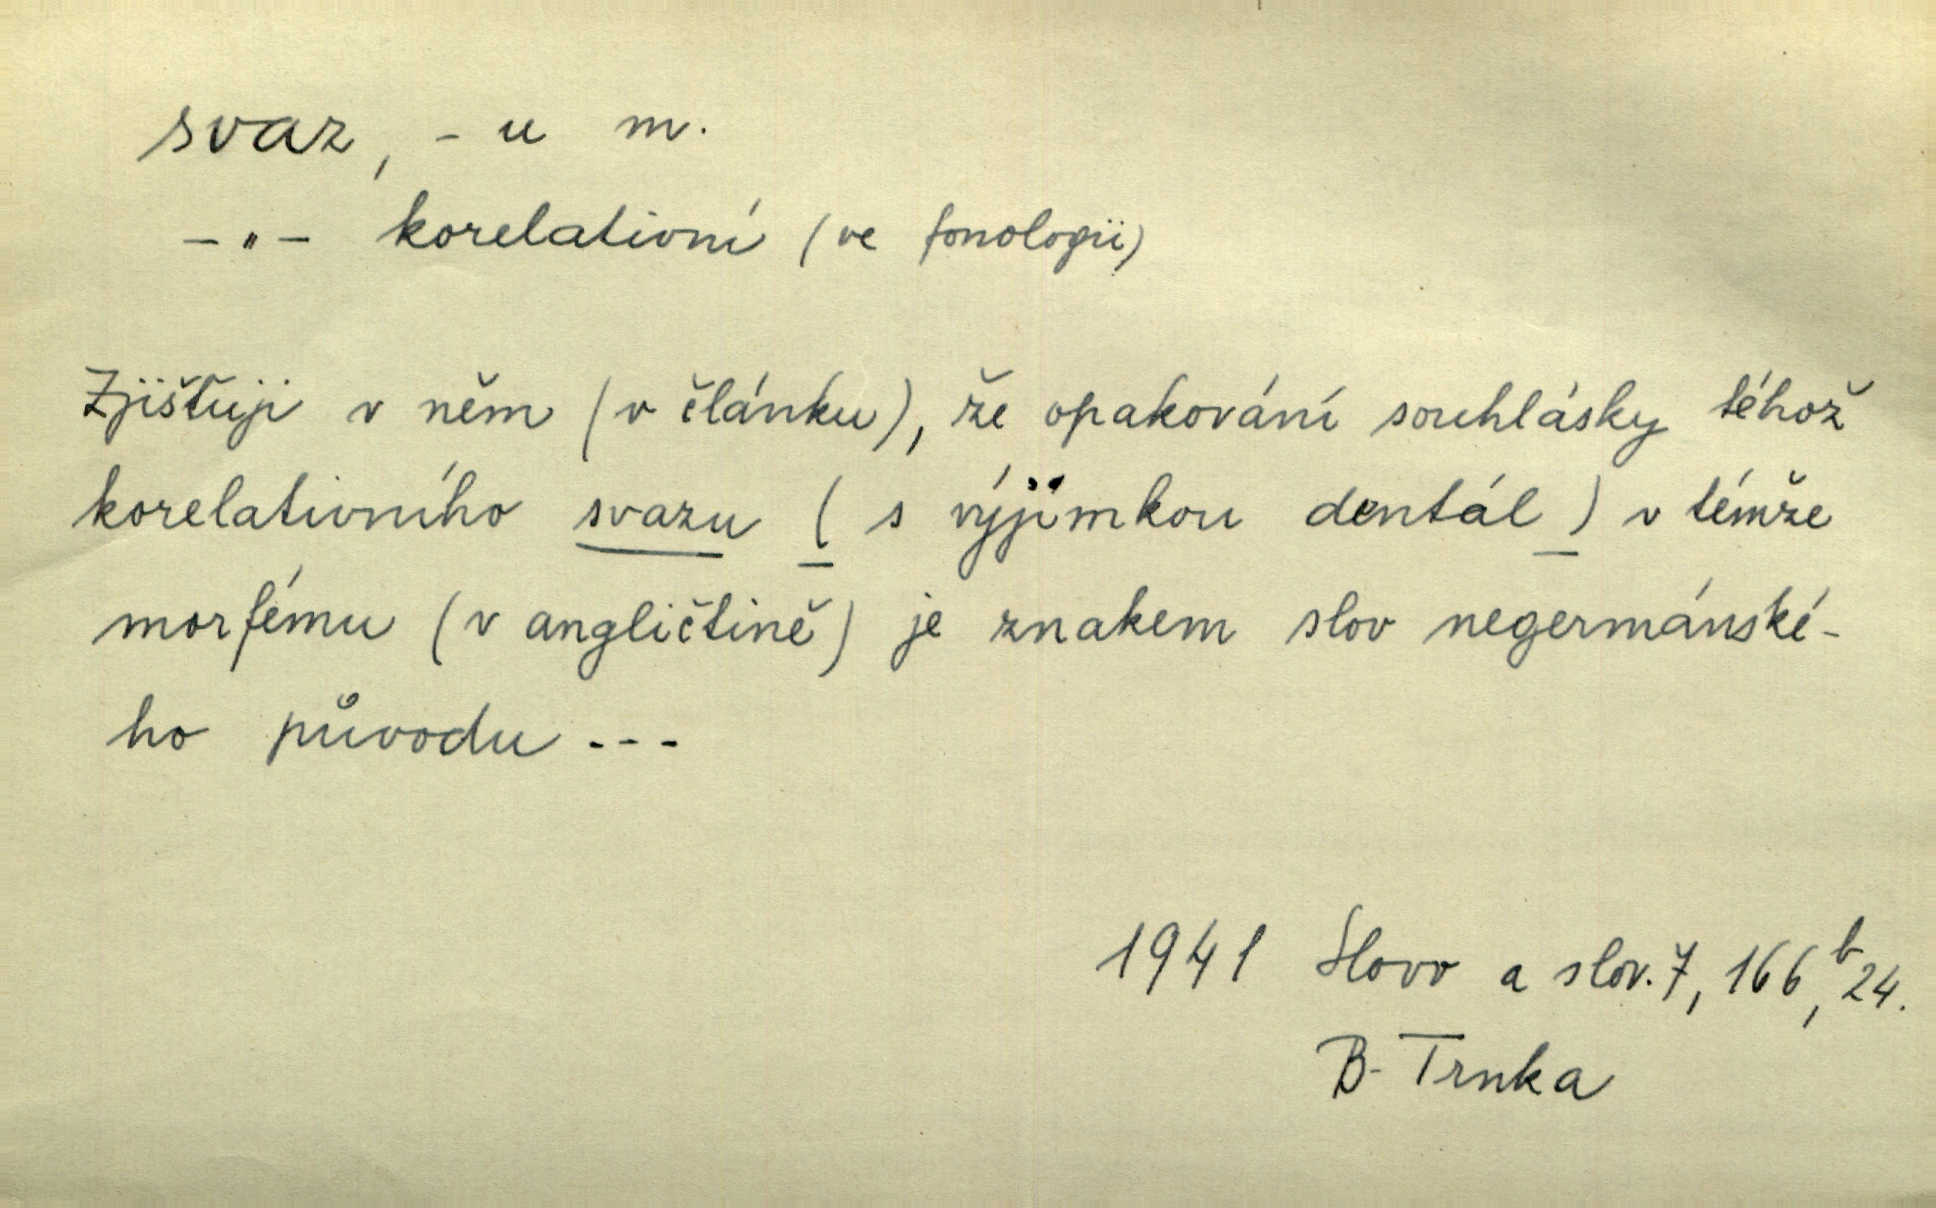 svaz, -u m.
-"- korelativní (ve fonologii)
Zjišťuji v něm (v článku), že opakování souhlásky téhož
korelativního svazu ( s výjimkou dentál ) v témže
morfému (v angličtině) je znakem slov negermánské-
ho původu ---
1941 Slovo a slov. 7, 166, b 24.
B. Trnka